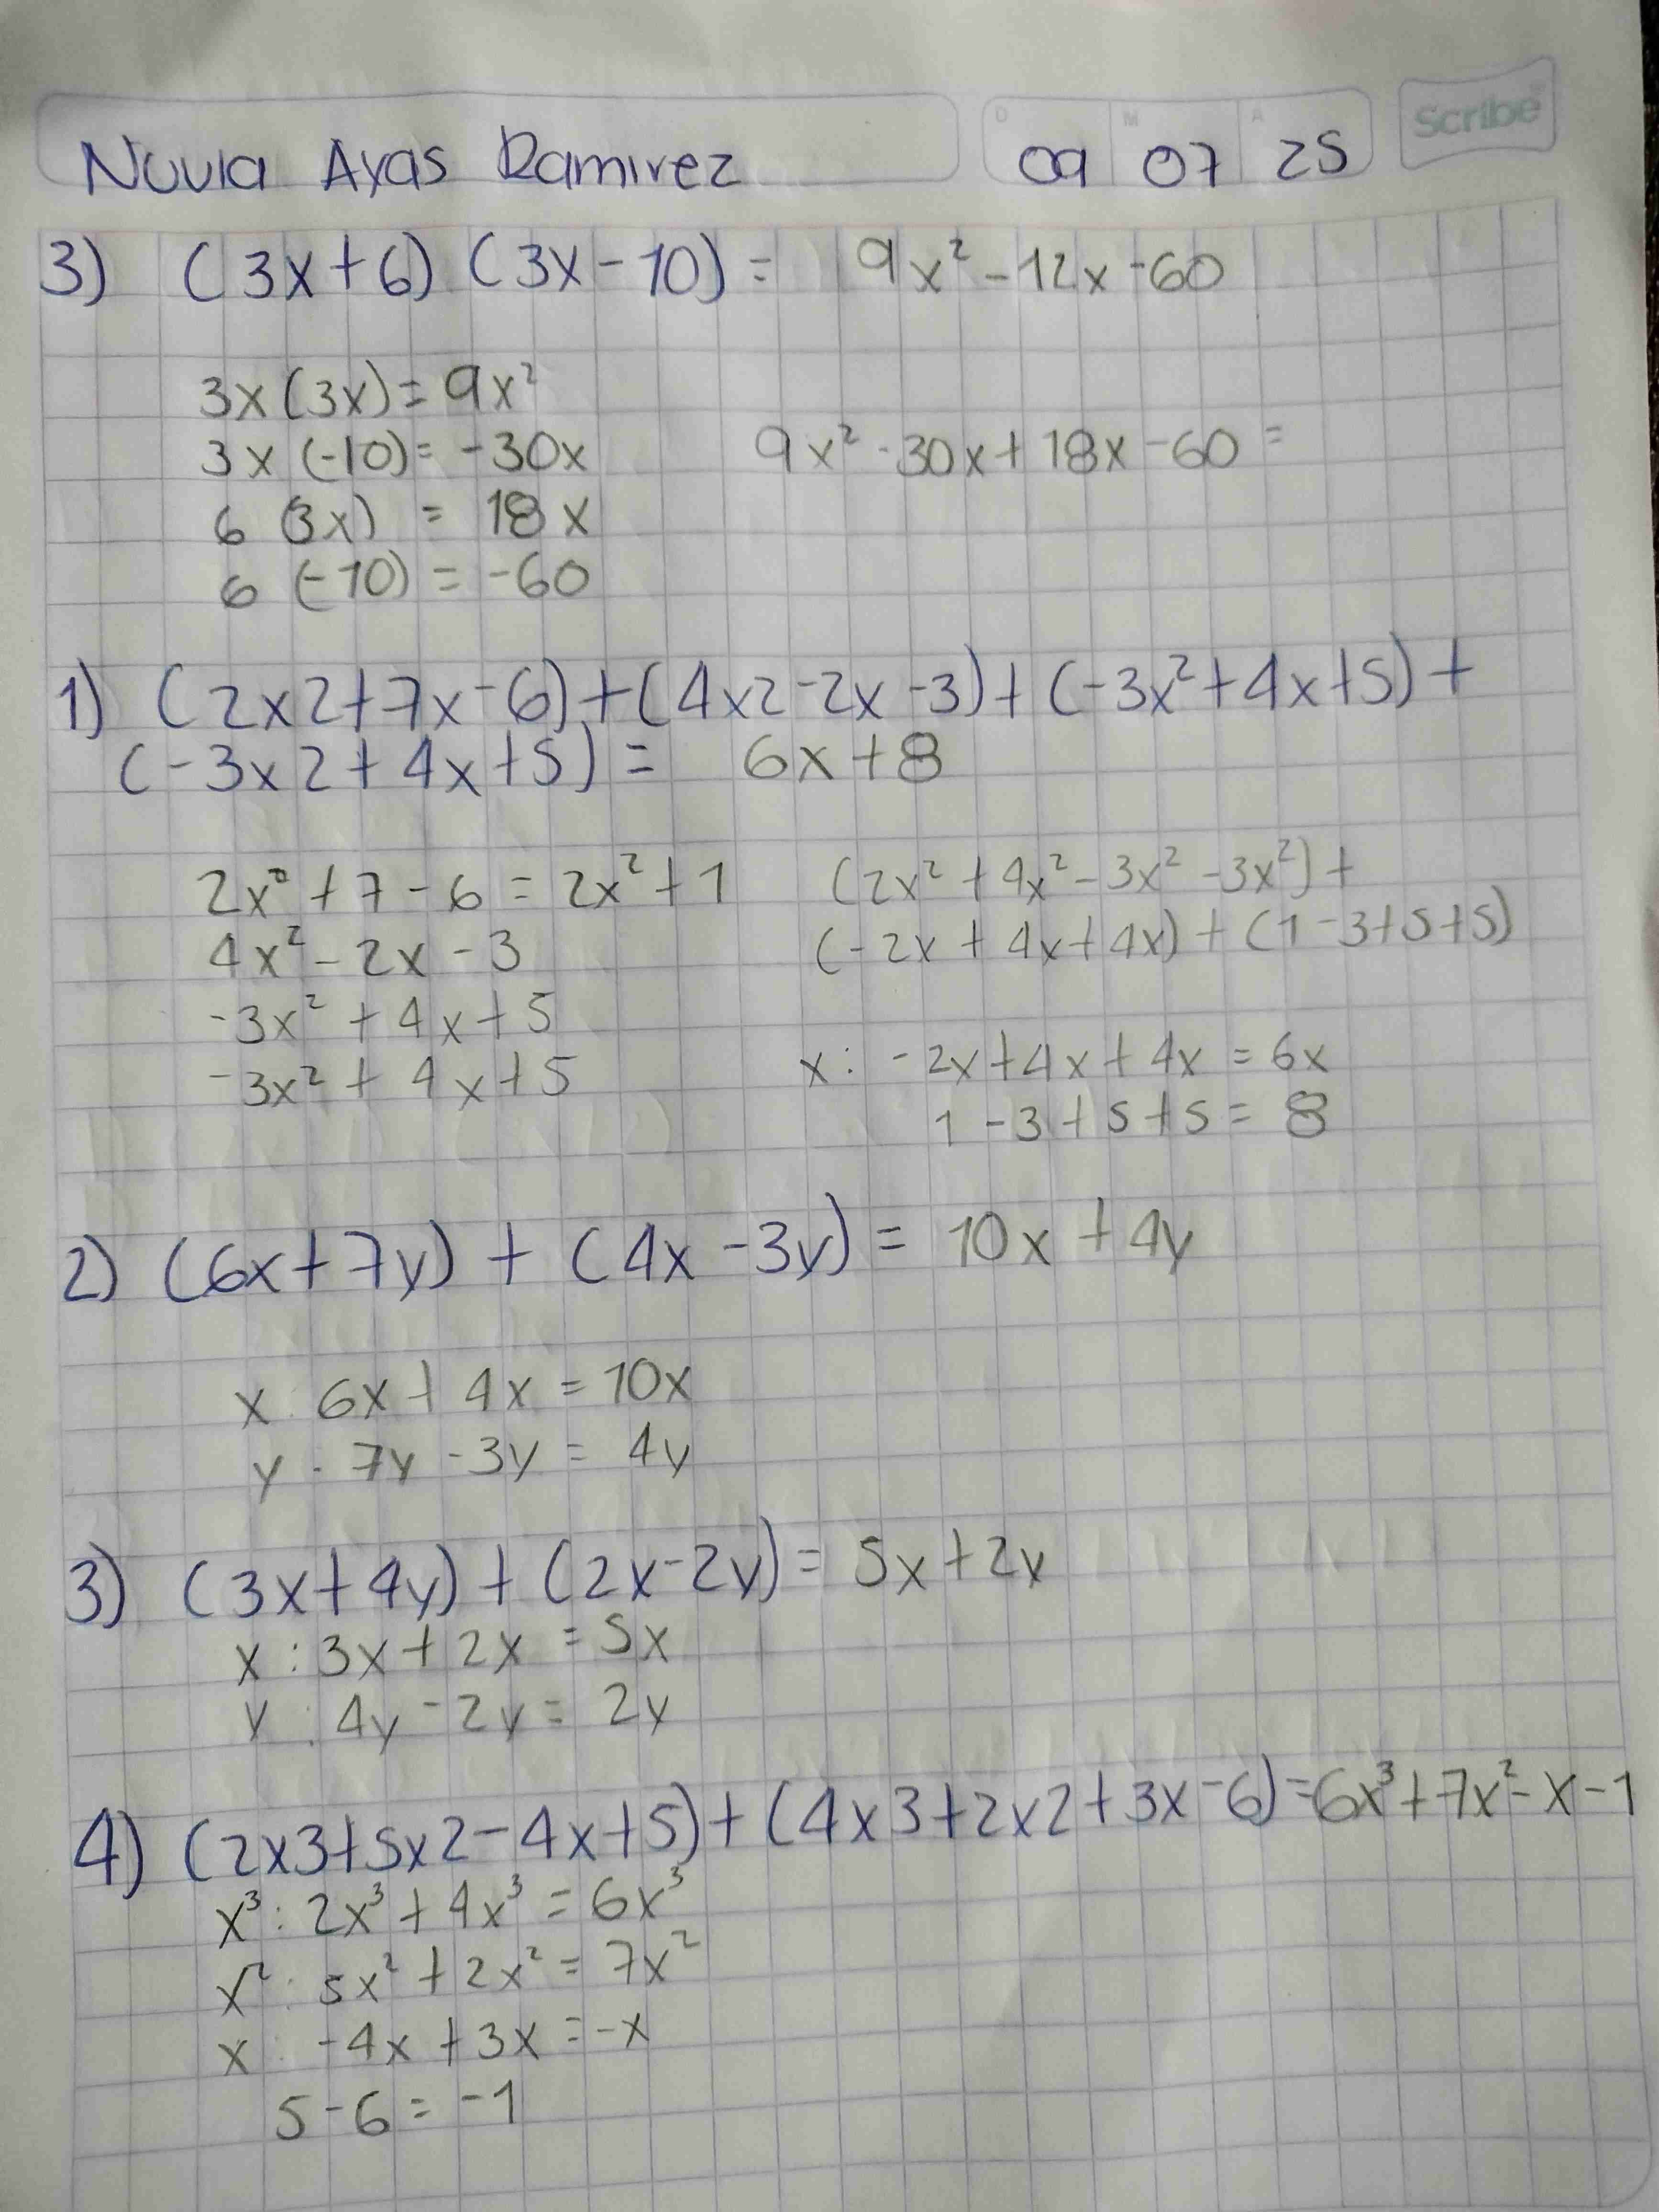 Nuvia Ayas Ramirez
D M A
09 07 25
Scribe
3) (3x+6) (3x-10) = 9x² - 12x - 60
3x (3x) = 9x²
3x (-10) = -30x
9x² - 30x + 18x - 60 =
6 (3x) = 18x
6 (-10) = -60
1) (2x2+7x-6)+(4x2-2x-3)+(-3x²+4x+5)+
(-3x2+4x+5) = 6x+8
2x² + 7 - 6 = 2x² + 1
4x² - 2x - 3
-3x² + 4x + 5
-3x² + 4x + 5
(2x² + 4x² - 3x² - 3x²) +
(-2x + 4x + 4x) + (1 - 3 + 5 + 5)
x: -2x + 4x + 4x = 6x
1 - 3 + 5 + 5 = 8
2) (6x+7y) + (4x-3y) = 10x + 4y
x: 6x + 4x = 10x
y: 7y - 3y = 4y
3) (3x+4y) + (2x-2y) = 5x + 2y
x: 3x + 2x = 5x
y: 4y - 2y = 2y
4) (2x3+5x2-4x+5)+(4x3+2x2+3x-6)=6x³+7x²-x-1
x³: 2x³ + 4x³ = 6x³
x²: 5x² + 2x² = 7x²
x: -4x + 3x = -x
5 - 6 = -1